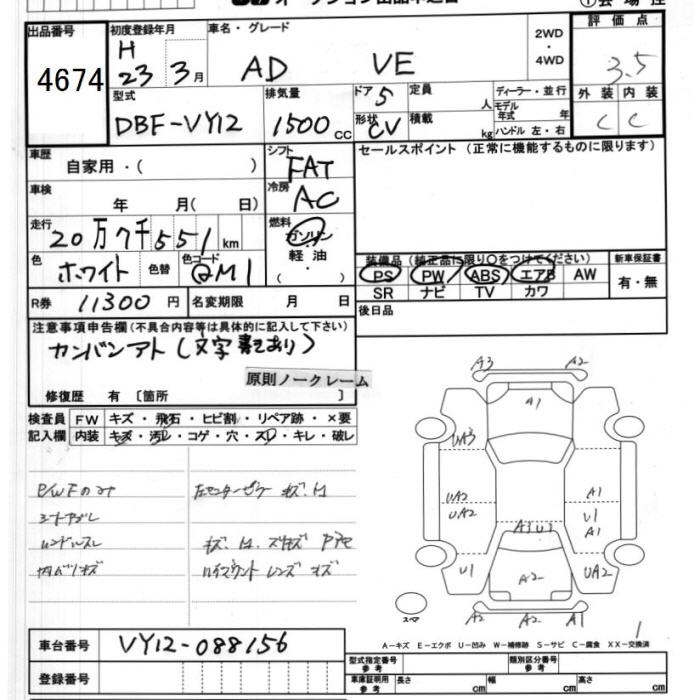 出品番号 初度登録年月 車名・グレード 2WD・4WD 評価点
4674 H 23 3月 AD VE 3.5
型式 排気量 ドア 5 定員 人 ディーラー・並行 外装 内装
DBF-VY12 1500 cc 形状 CV 積載 kg モデル年式 年 ハンドル 左・右 C C
車歴 自家用・( ) シフト FAT セールスポイント(正常に機能するものに限ります)
車検 年 月( 日) 冷房 AC
走行 20万7千551km 燃料 ガソリン 軽油 ( ・ )
色 ホワイト 色替 色コード QM1
装備品(純正品に限り○をつけてください) 新車保証書
PS PW ABS エアB AW 有・無
SR ナビ TV カワ
R券 11300円 名変期限 月 日 後日品
注意事項申告欄(不具合内容等は具体的に記入して下さい)
カンバンアト(文字書きあり)
原則ノークレーム
修復歴 有 [箇所 ]
検査員記入欄 FW キズ・飛石・ヒビ割・リペア跡・×要
内装 キズ・汚レ・コゲ・穴・スレ・キレ・破レ
シートヨゴレ
ハンドルスレ
内バリキズ
ハイマウントレンズキズ
A3 A2
A1
UA3
UA2 A1
UA2 U1
A1
A3 U3
U1 A2 UA2
A2 A2 A1
スペア
1
A-キズ E-エクボ U-凹み W-補修跡 S-サビ C-腐食 XX-交換済
車台番号 VY12-088156
型式指定番号 参考 類別区分番号 参考
登録番号 車庫証明用 参考 長さ cm 幅 cm 高さ cm